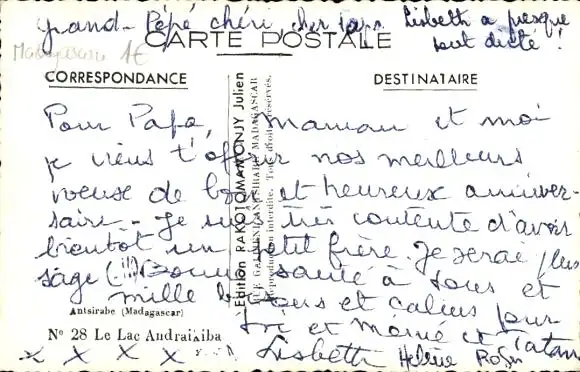 grand-Pépé chéri, cher papa. Lisbeth a presque
tout dicté !
Madagascar 1€
CARTE POSTALE
CORRESPONDANCE
DESTINATAIRE
Edition RAKOTOMAMONJY Julien
Reproduction interdite. Tous droits réservés.
Pour Papa, maman et moi
je viens t'offrir nos meilleurs
voeuse de bon et heureux anniver-
saire - Je suis très contente d'avoir
bientôt un petit frère. Je serai plus
sage (!!!) Bonne santé à tous et
mille bisous et calins pour
Toi et Mamé et Tatan
Lisbeth Hélène Roger
Antsirabe (Madagascar)
N° 28 Le Lac Andraikiba
x x x x